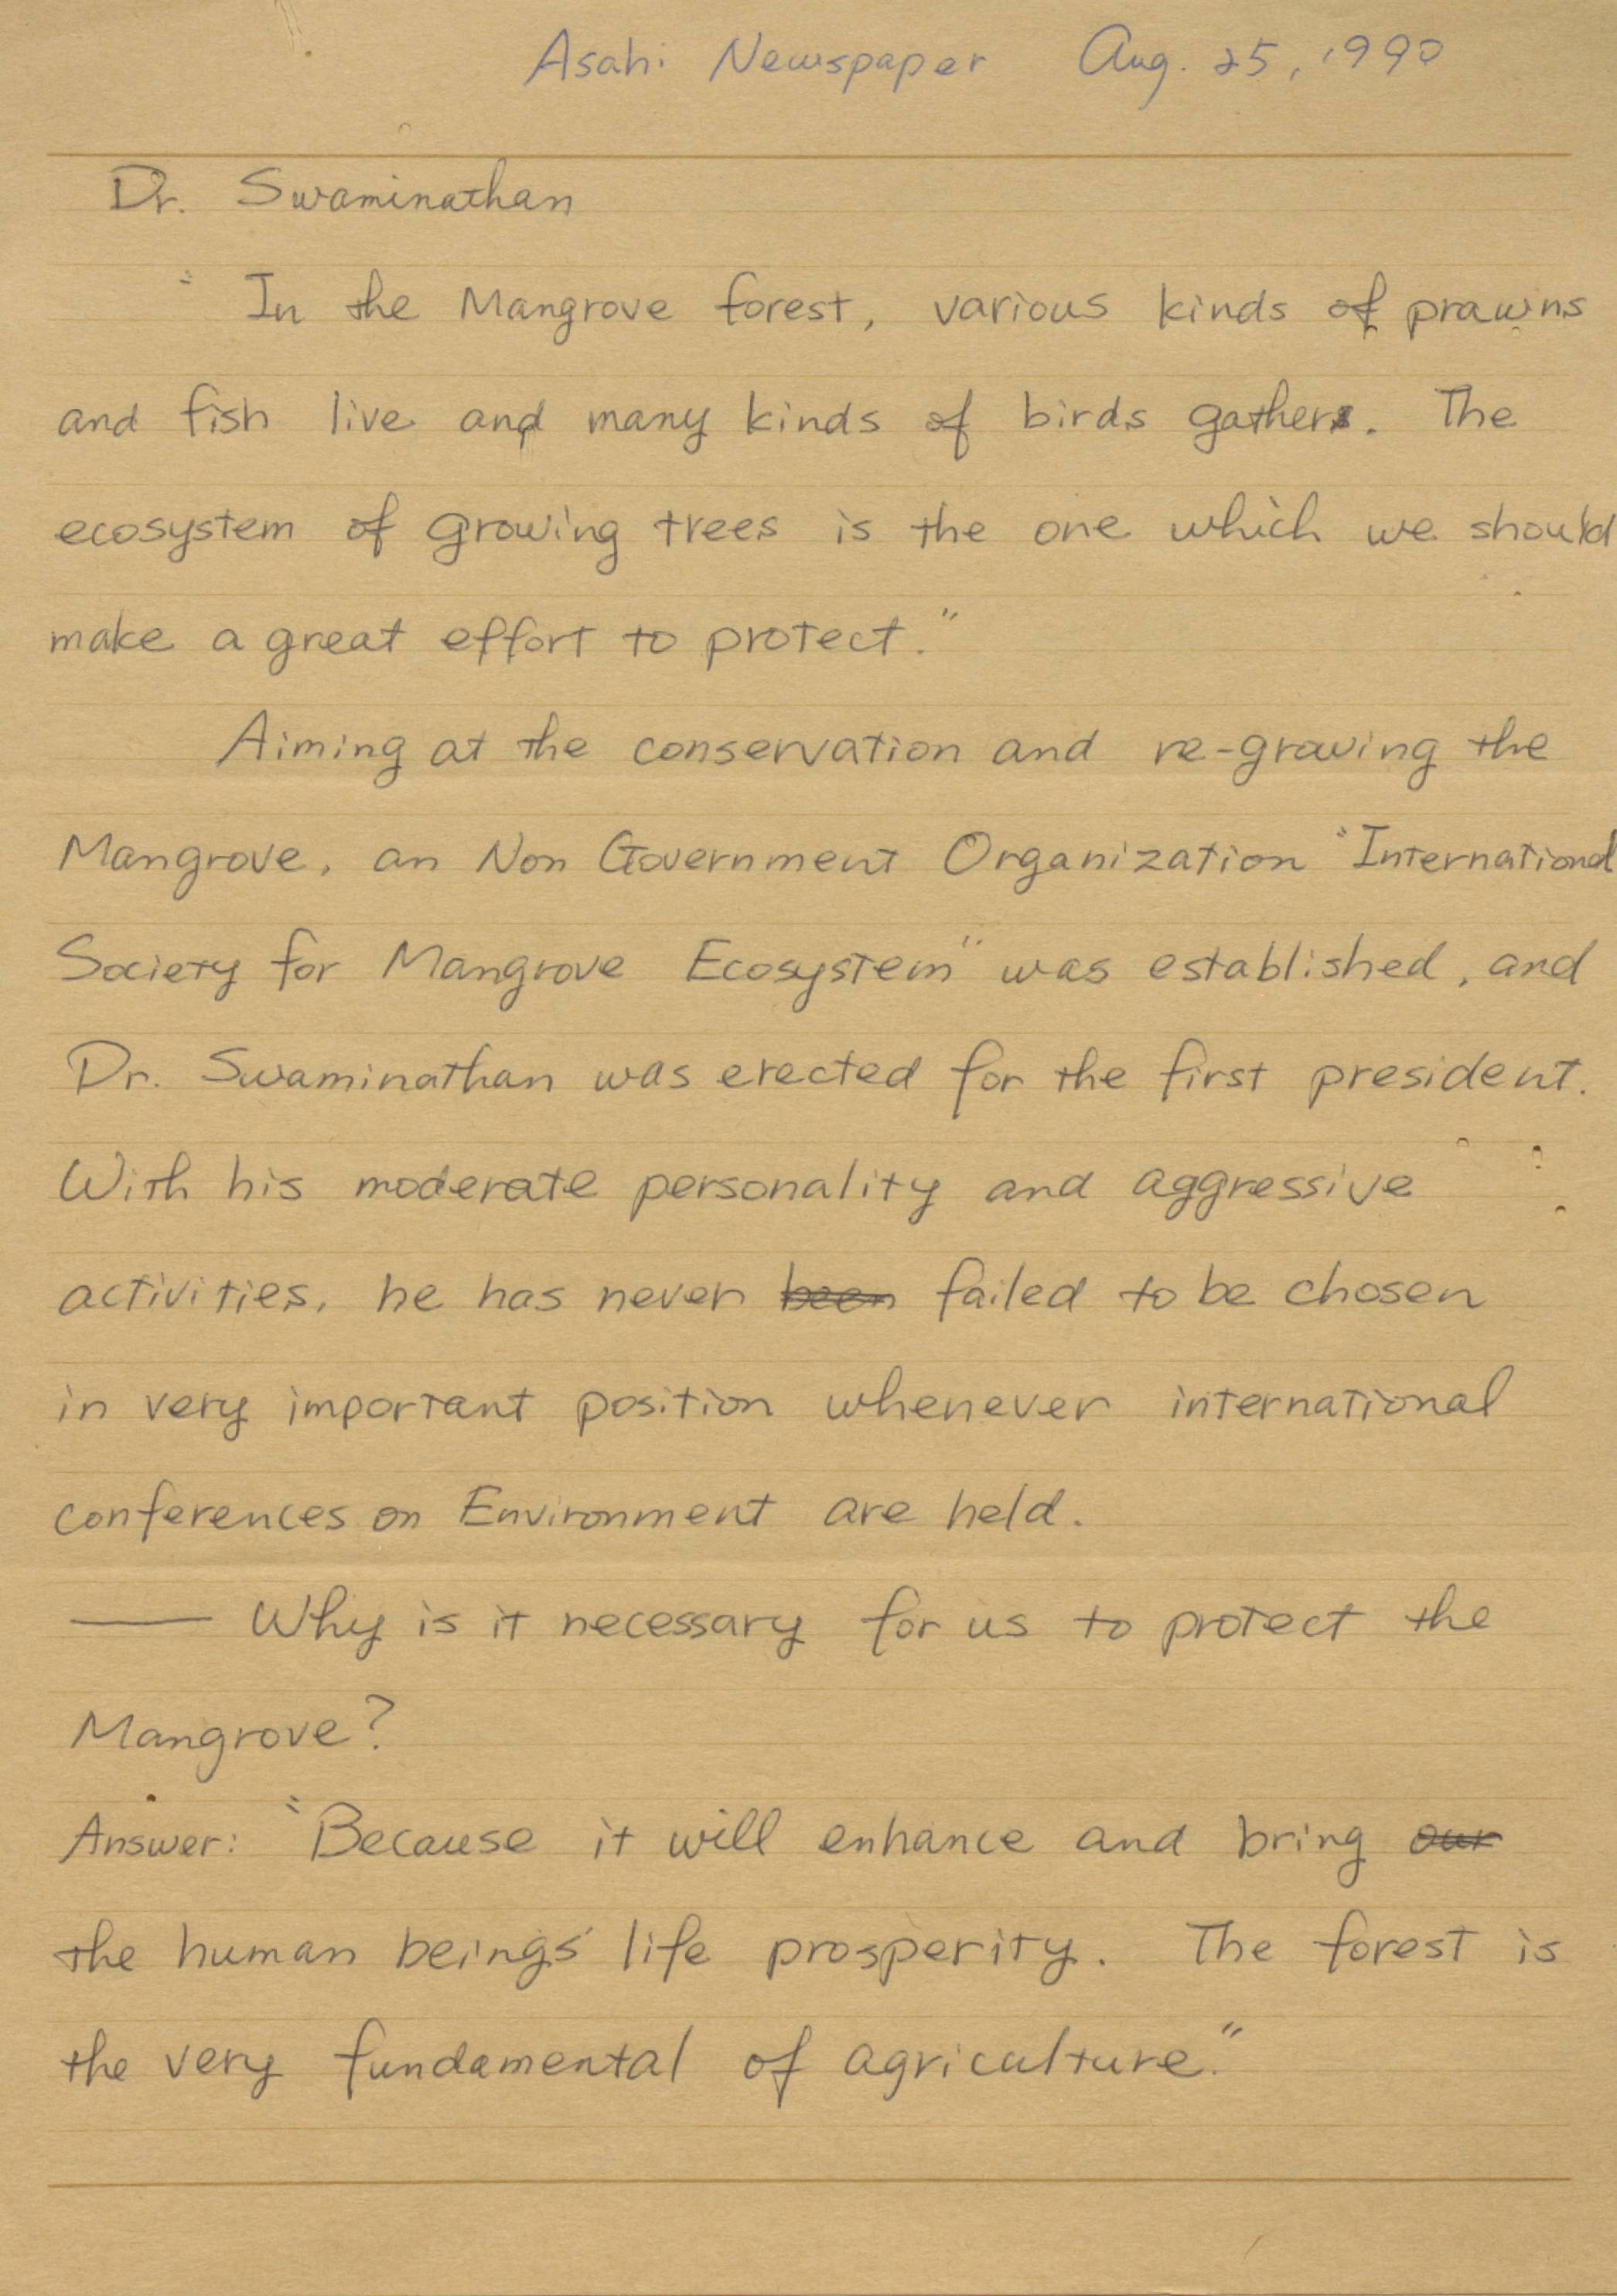 Asahi Newspaper Aug. 25, 1990
Dr. Swaminathan
"In the Mangrove forest, various kinds of prawns
and fish live and many kinds of birds gather. The
ecosystem of growing trees is the one which we should
make a great effort to protect."
Aiming at the conservation and re-growing the
Mangrove, an Non Government Organization "International
Society for Mangrove Ecosystem" was established, and
Dr. Swaminathan was erected for the first president.
With his moderate personality and aggressive
activities, he has never been failed to be chosen
in very important position whenever international
conferences on Environment are held.
—— Why is it necessary for us to protect the
Mangrove?
Answer: "Because it will enhance and bring our
the human beings' life prosperity. The forest is
the very fundamental of agriculture."